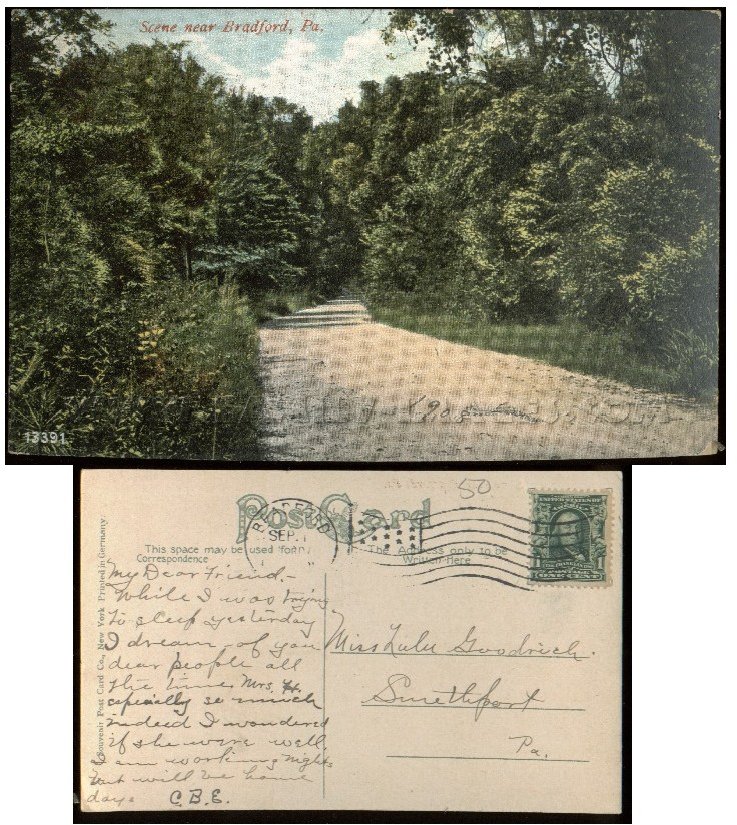 Scene near Bradford, Pa.
1908
13391
50
Post Card
BRADFORD
SEP.
This space may be used for
Correspondence
The Address only to be
Written Here
UNITED STATES OF AMERICA
1
POSTAGE
ONE CENT
Souvenir Post Card Co., New York Printed in Germany.
My Dear Friend,-
While I was trying
to sleep yesterday
I dream of you
dear people all
the time Mrs. H.
especially so much
indeed I wondered
if she were well,
I am working nights
but will be home
days
C.B.E.
Miss Lulu Goodrich.
Smethport
Pa.